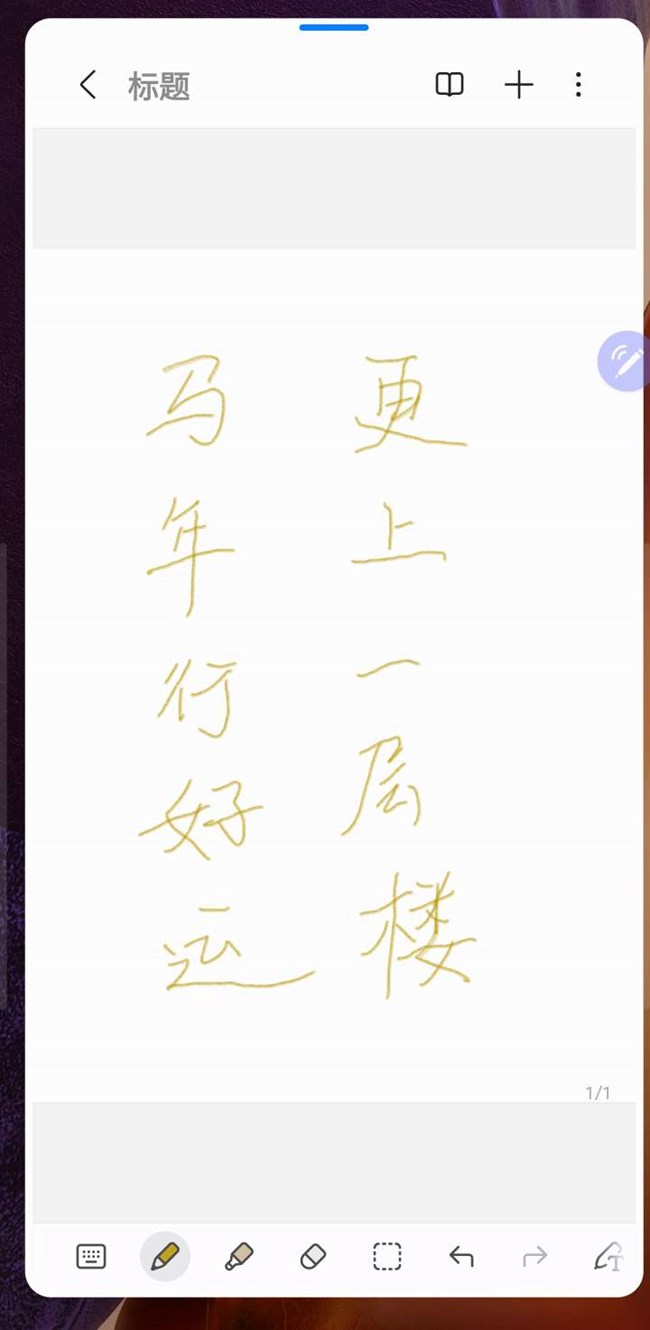 标题
马年行好运
更上一层楼
1/1